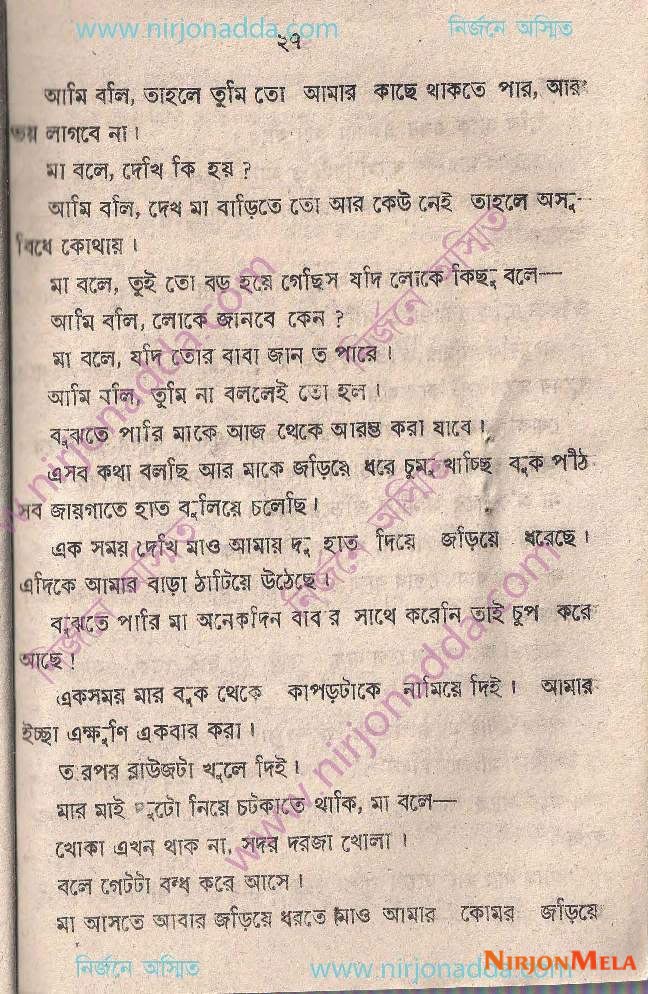 www.nirjonadda.com নির্জনে অস্মিত
২৭
আমি বলি, তাহলে তুমি তো আমার কাছে থাকতে পার, আর
ভয় লাগবে না।
মা বলে, দেখি কি হয় ?
আমি বলি, দেখ মা বাড়িতে তো আর কেউ নেই তাহলে অসু-
বিধে কোথায়।
মা বলে, তুই তো বড় হয়ে গেছিস যদি লোকে কিছু বলে—
আমি বলি, লোকে জানবে কেন ?
মা বলে, যদি তোর বাবা জান ত পারে।
আমি বলি, তুমি না বললেই তো হল।
বুঝতে পারি মাকে আজ থেকে আরম্ভ করা যাবে।
এসব কথা বলছি আর মাকে জড়িয়ে ধরে চুমু খাচ্ছি বুক পীঠ
সব জায়গাতে হাত বুলিয়ে চলেছি।
এক সময় দেখি মাও আমার দু হাত দিয়ে জড়িয়ে ধরেছে।
এদিকে আমার বাড়া ঠাটিয়ে উঠেছে।
বুঝতে পারি মা অনেকদিন বাবর সাথে করেনি তাই চুপ করে
আছে!
একসময় মার বুক থেকে কাপড়টাকে নামিয়ে দিই। আমার
ইচ্ছা এক্ষুণি একবার করা।
ত রপর ব্লাউজটা খুলে দিই।
মার মাই দুটো নিয়ে চটকাতে থাকি, মা বলে—
খোকা এখন থাক না, সদর দরজা খোলা।
বলে গেটটা বন্ধ করে আসে।
মা আসতে আবার জড়িয়ে ধরতে মাও আমার কোমর জড়িয়ে
নির্জনে অস্মিত www.nirjonadda.com NIRJONMELA
www.nirjonadda.com
নির্জনে অস্মিত
নির্জনে অস্মিত
নির্জনে অস্মিত
www.nirjonadda.com